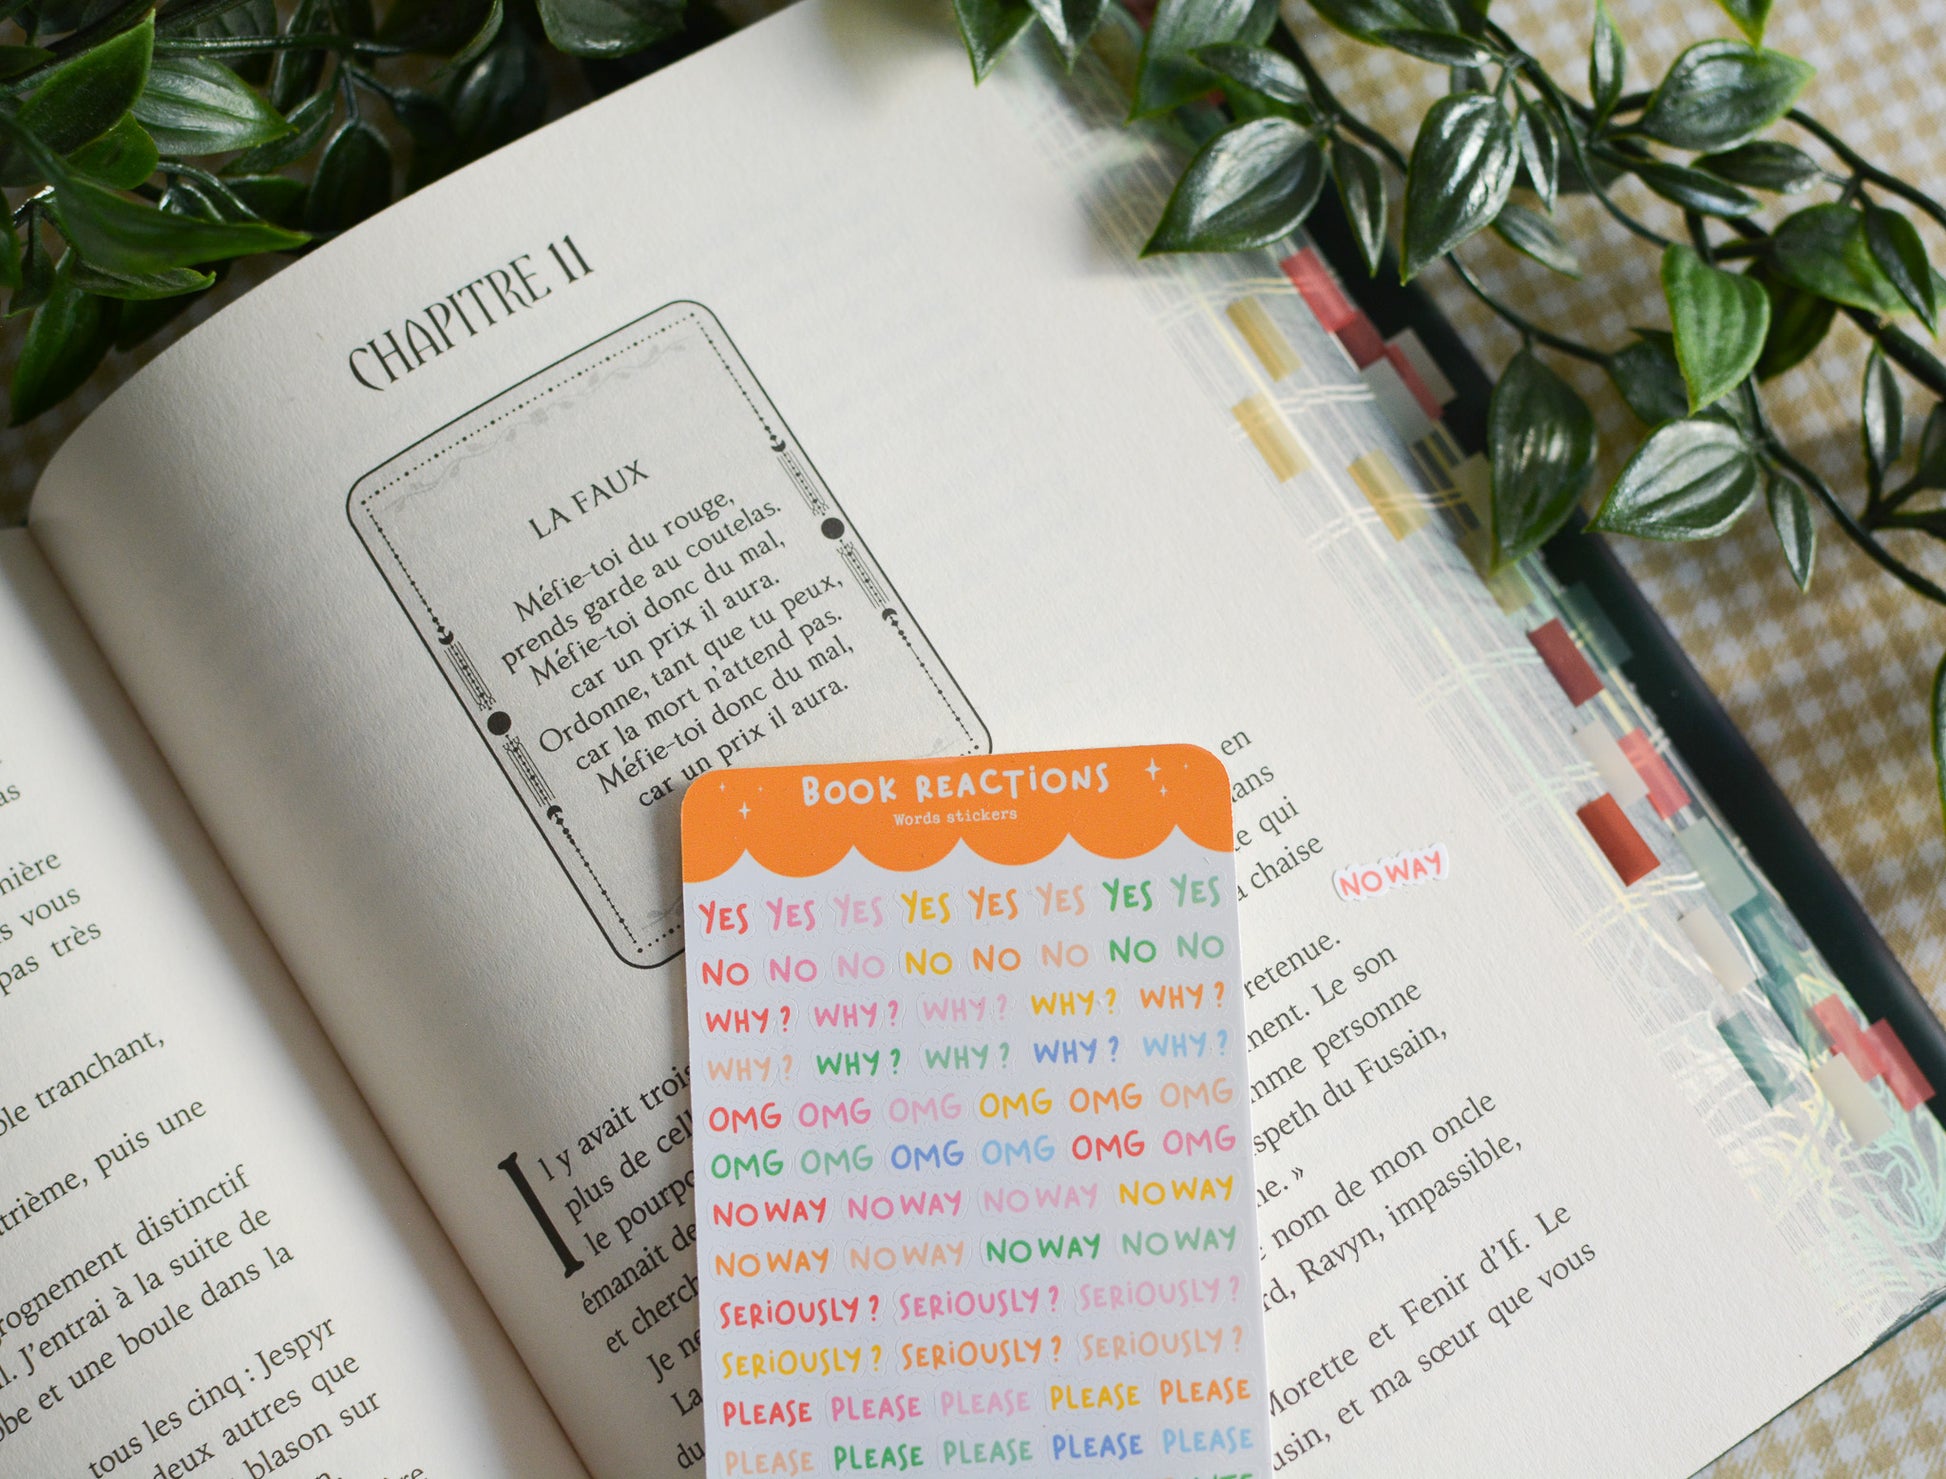 as
nière
s vous
pas très
ble tranchant,
trième, puis une
rognement distinctif
l. J'entrai à la suite de
be et une boule dans la
tous les cinq : Jespyr
deux autres que
blason sur
CHAPITRE 11
LA FAUX
Méfie-toi du rouge,
prends garde au coutelas.
Méfie-toi donc du mal,
car un prix il aura.
Ordonne, tant que tu peux,
car la mort n'attend pas.
Méfie-toi donc du mal,
car un prix il aura.
Il y avait trois
plus de cel
le pourpo
émanait de
et cherch
Je ne
La
du
en
ans
e qui
a chaise
retenue.
ment. Le son
mme personne
speth du Fusain,
ne. »
nom de mon oncle
rd, Ravyn, impassible,
Morette et Fenir d'If. Le
usin, et ma sœur que vous
NO WAY
BOOK REACTIONS
Words stickers
YES YES YES YES YES YES YES YES
NO NO NO NO NO NO NO NO
WHY? WHY? WHY? WHY? WHY?
WHY? WHY? WHY? WHY? WHY?
OMG OMG OMG OMG OMG OMG
OMG OMG OMG OMG OMG OMG
NO WAY NO WAY NO WAY NO WAY
NO WAY NO WAY NO WAY NO WAY
SERIOUSLY? SERIOUSLY? SERIOUSLY?
SERIOUSLY? SERIOUSLY? SERIOUSLY?
PLEASE PLEASE PLEASE PLEASE PLEASE
PLEASE PLEASE PLEASE PLEASE PLEASE